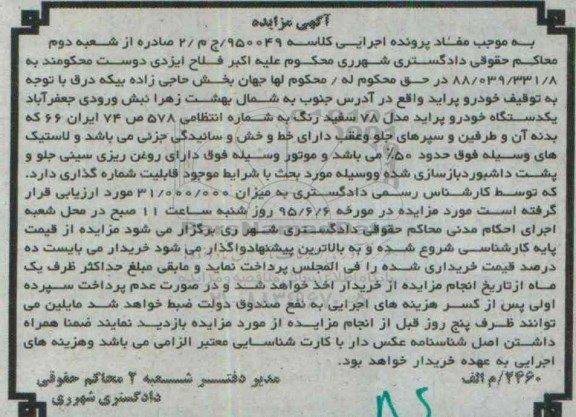 آگهی مزایده
به موجب مفاد پرونده اجرایی کلاسه ۹۵۰۰۴۹/ج م /۲ صادره از شعبه دوم
محاکم حقوقی دادگستری شهرری محکوم علیه اکبر فلاح ایزدی دوست محکومند به
۸۸/۰۳۹/۳۳۱/۸ در حق محکوم له / محکوم لها جهان بخش حاجی زاده بیکه درق با توجه
به توقیف خودرو پراید واقع در آدرس جنوب به شمال بهشت زهرا نبش ورودی جعفرآباد
یکدستگاه خودرو پراید مدل ۷۸ سفید رنگ به شماره انتظامی ۵۷۸ ص ۷۴ ایران ۶۶ که
بدنه آن و طرفین و سپرهای جلو وعقب دارای خط و خش و سائیدگی جزئی می باشد و لاستیک
های وسیله فوق حدود ۵۰٪ می باشد و موتور وسیله فوق دارای روغن ریزی سینی جلو و
پشت داشبوردبازسازی شده ووسیله مورد بحث با شرایط موجود قابلیت شماره گذاری دارد.
که توسط کارشناس رسمی دادگستری به میزان ۳۱/۰۰۰/۰۰۰ مورد ارزیابی قرار
گرفته است مورد مزایده در مورخه ۹۵/۶/۶ روز شنبه ساعت ۱۱ صبح در محل شعبه
اجرای احکام مدنی محاکم حقوقی دادگستری شهر ری برگزار می شود مزایده از قیمت
پایه کارشناسی شروع شده و به بالاترین پیشنهادواگذار می شود خریدار می بایست ده
درصد قیمت خریداری شده را فی المجلس پرداخت نماید و مابقی مبلغ حداکثر ظرف یک
ماه ازتاریخ انجام مزایده از خریدار اخذ خواهد شد و در صورت عدم پرداخت سپرده
اولی پس از کسر هزینه های اجرایی به نفع صندوق دولت ضبط خواهد شد مایلین می
توانند ظرف پنج روز قبل از انجام مزایده از مورد مزایده بازدید نمایند ضمنا همراه
داشتن اصل شناسنامه عکس دار با کارت شناسایی معتبر الزامی می باشد وهزینه های
اجرایی به عهده خریدار خواهد بود.
۲۴۶۰/م الف
مدیر دفتر شعبه ۲ محاکم حقوقی
دادگستری شهرری
۸۲